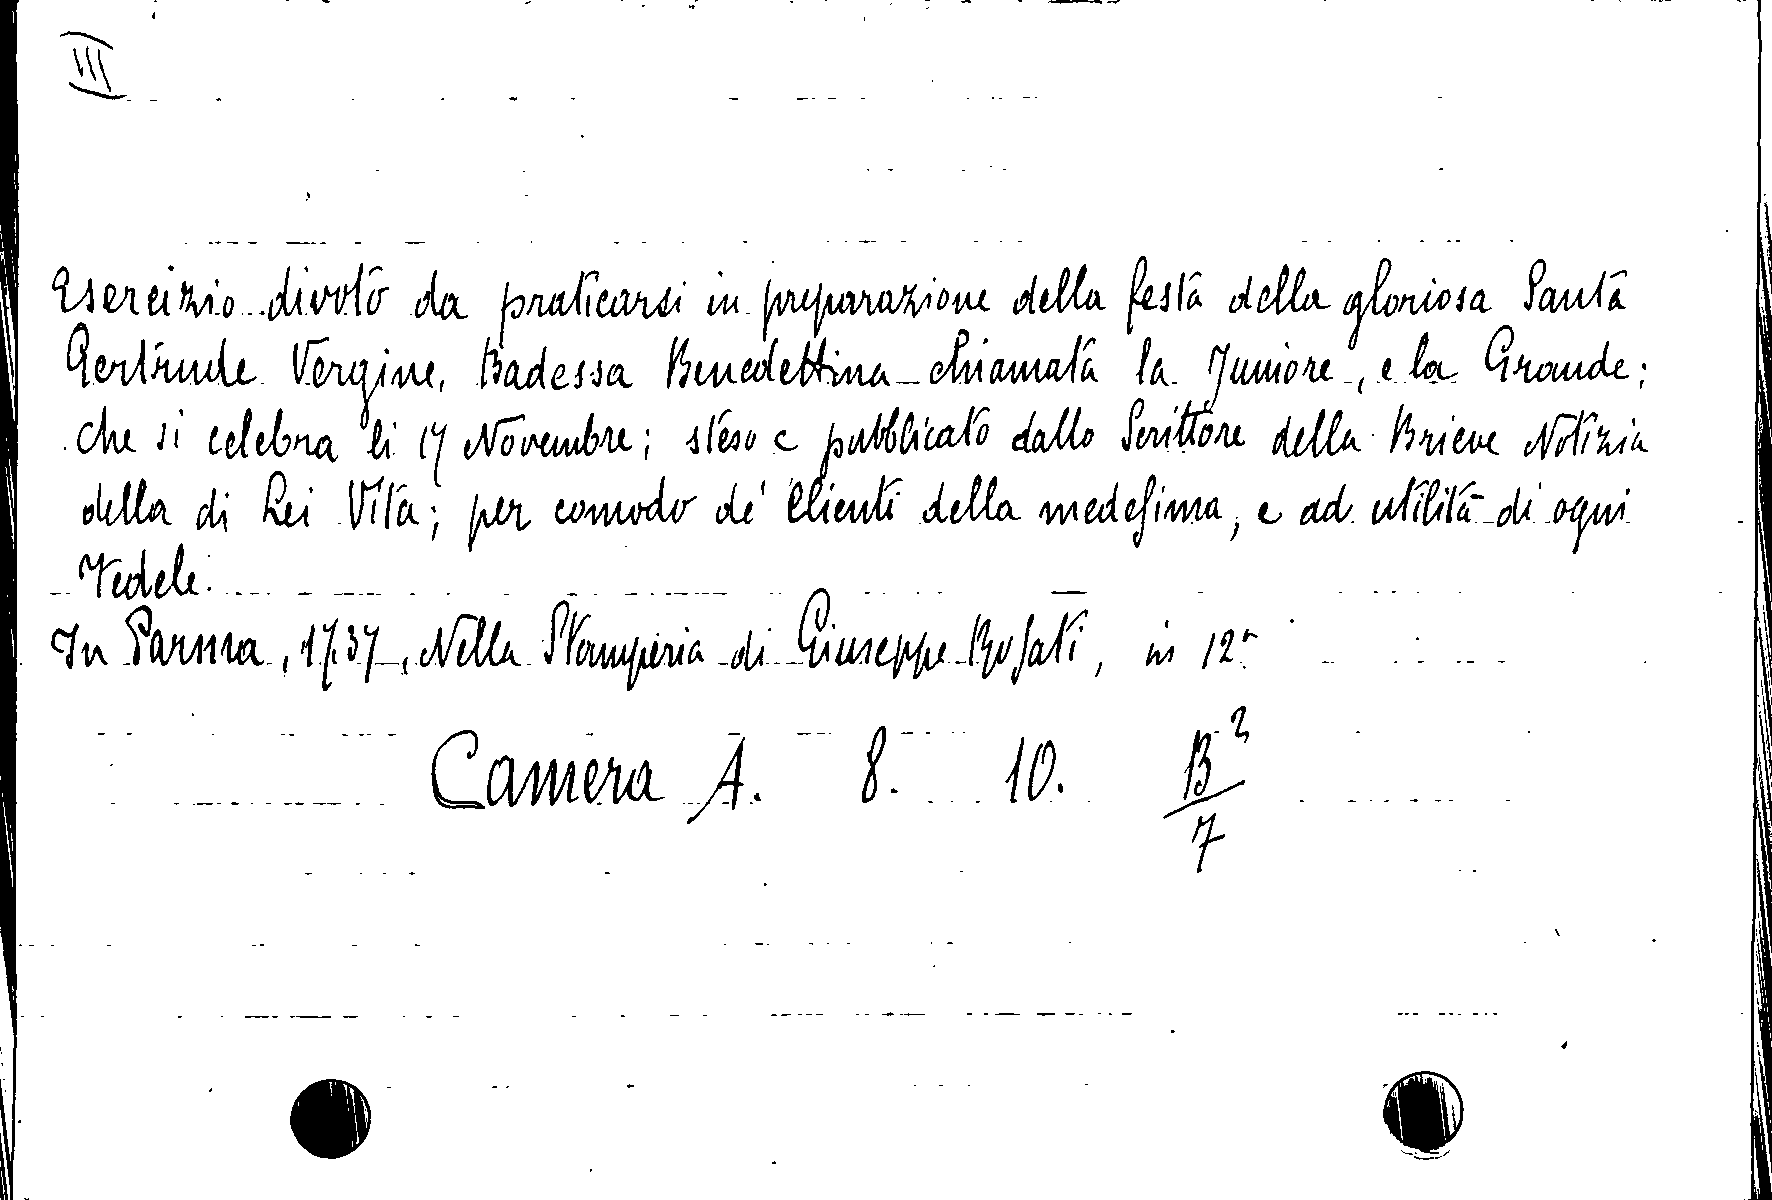 III
Esercizio divoto da praticarsi in preparazione della festa della gloriosa Santa
Gertrude Vergine, Badessa Benedettina chiamata la Juniore, e la Grande;
che si celebra li 17 Novembre; steso e pubblicato dallo Scrittore della Brieve Notizia
della di Lei Vita; per comodo de' Clienti della medesima, e ad utilità di ogni
Fedele.
In Parma, 1737, Nella Stamperia di Giuseppe Rosati, in 12°
Camera A. 8. 10. B²
7